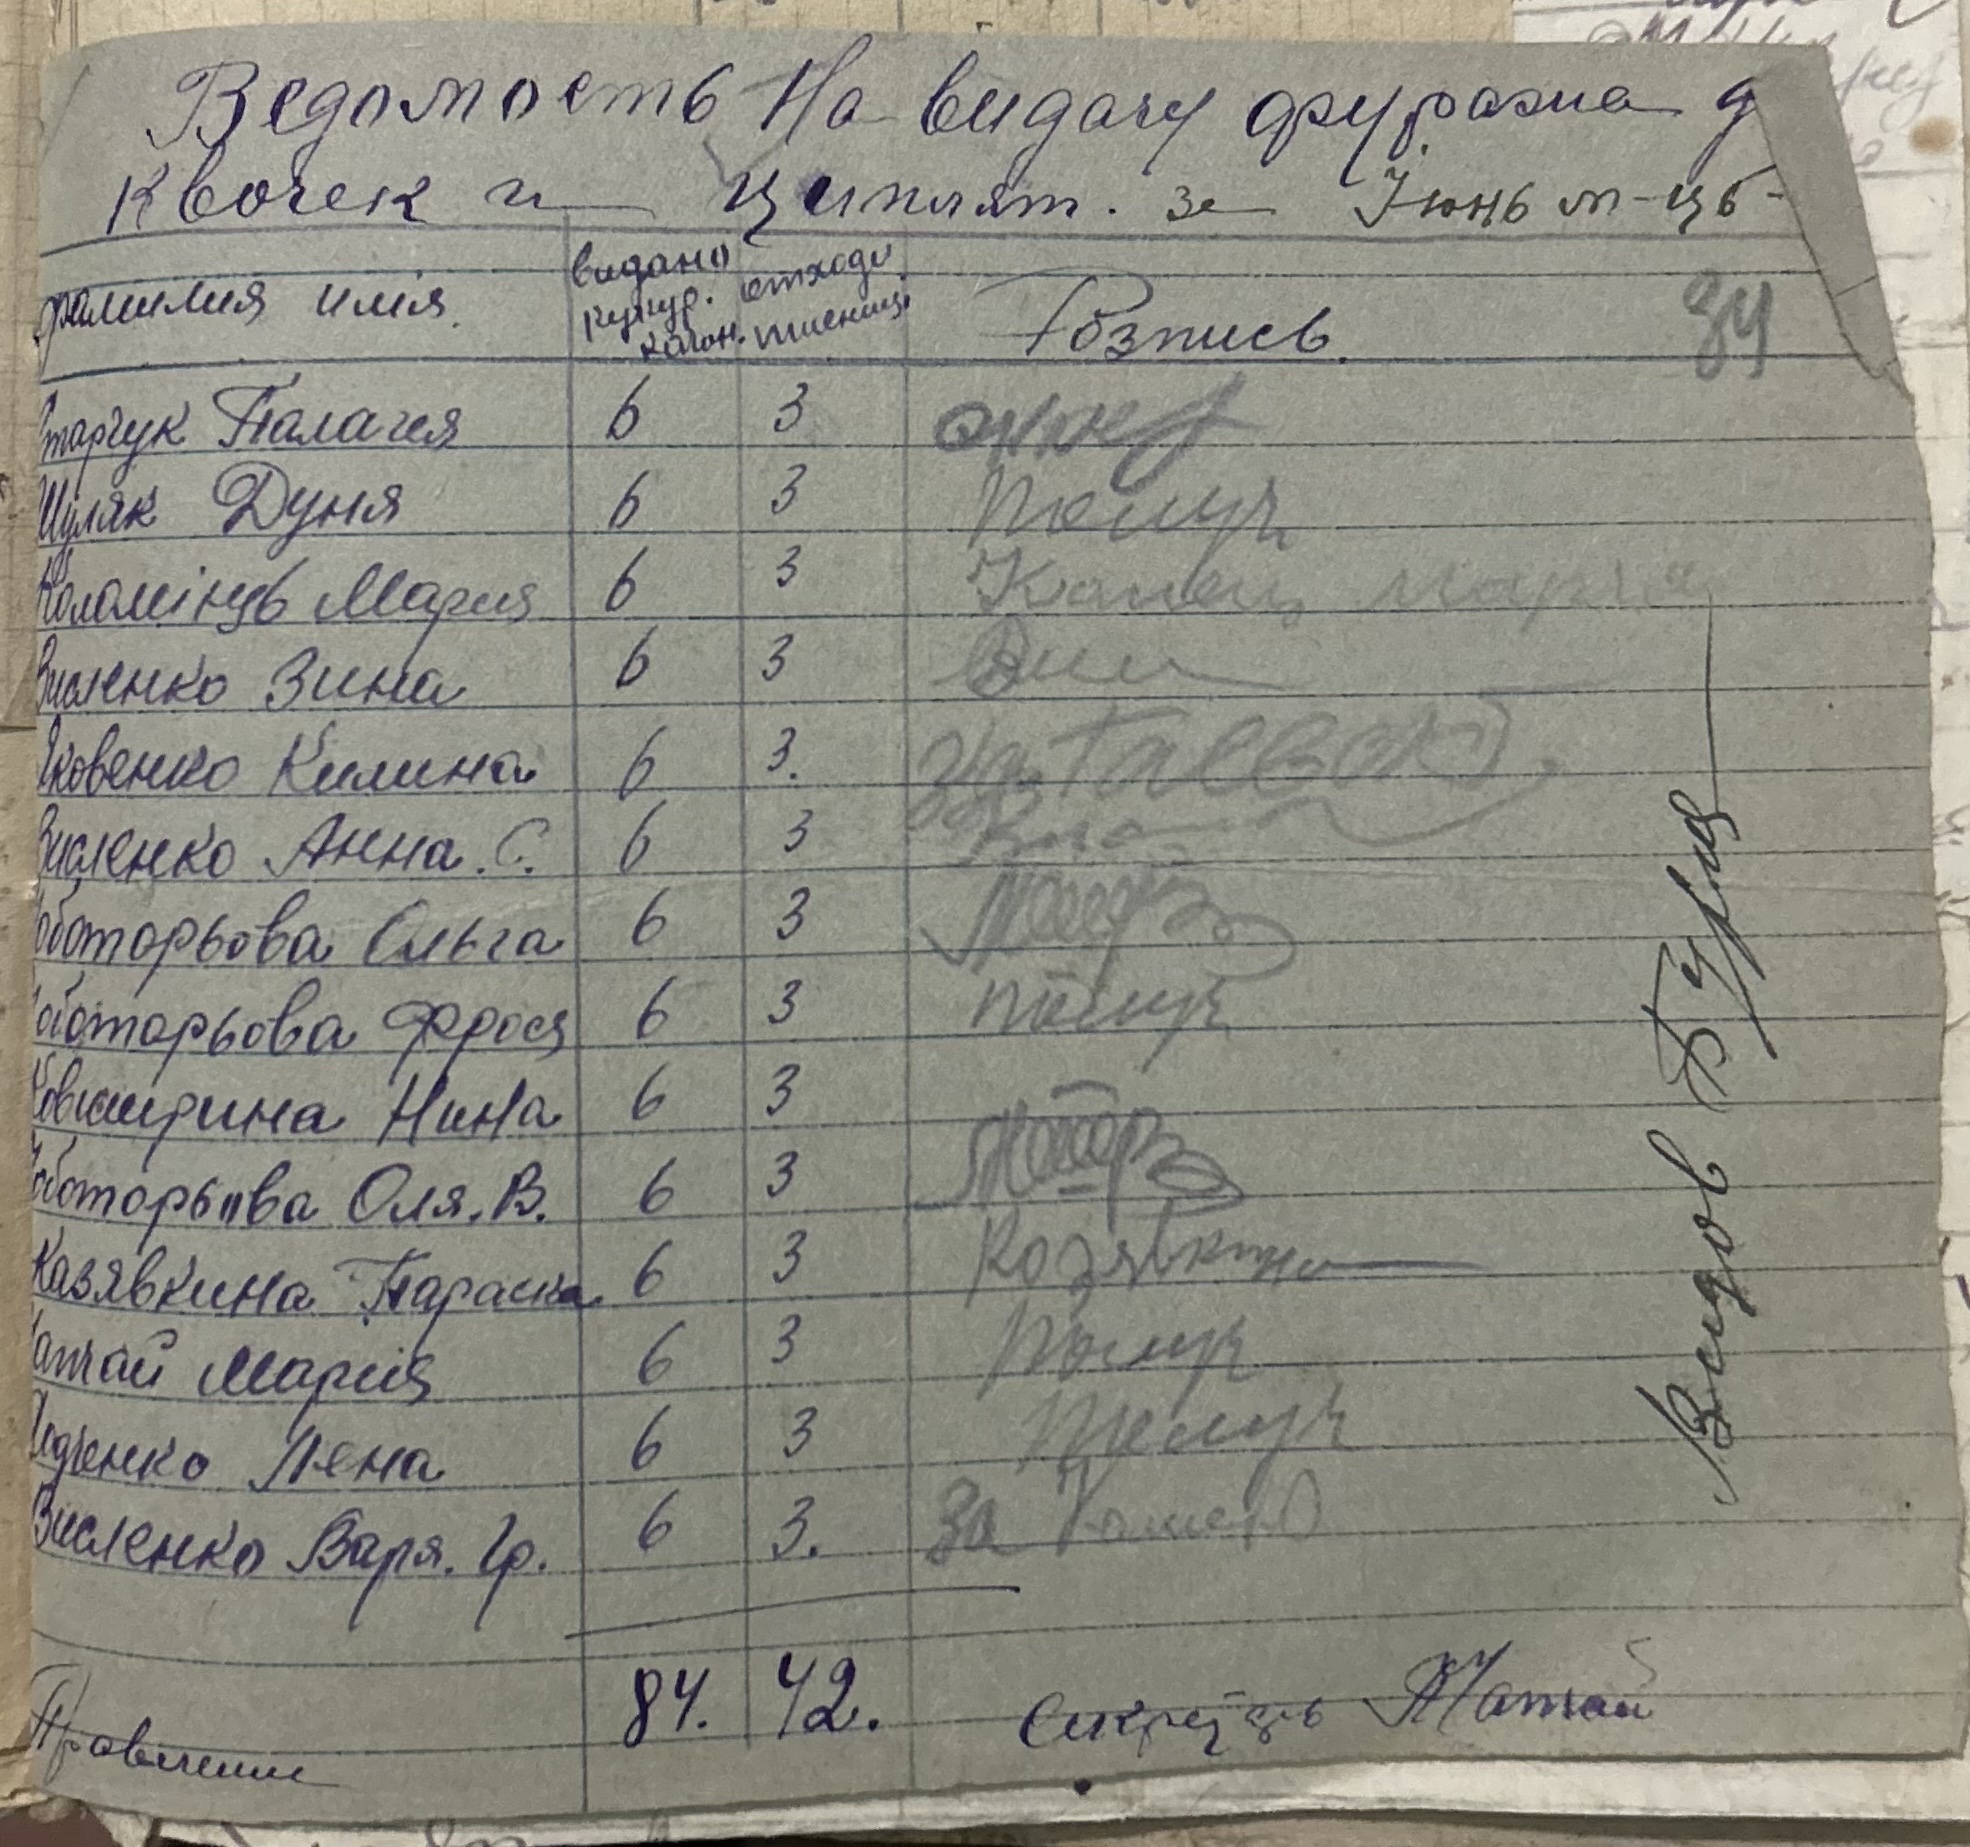 Ведомость На видачу фуража д
Квочек и циплят. за Июнь м-ць-
фамилия имія. видано кукур. качон. отходи пшениця Розпись. 34
Старчук Палагея 6 3
Шуляк Дуня 6 3 Получ
Коломінць Мария 6 3 Мария
Висленко Зина 6 3
Яковенко Килина 6 3.
Висленко Анна. С. 6 3
оботарьова Ольга 6 3
оботарьова Фрося 6 3 получ
Нина 6 3
оботарьова Оля. В. 6 3
Казявкина Параска 6 3 Козявкина
атчай Мария 6 3 Получ
одченко Лена 6 3 Получ
Висленко Варя. Гр. 6 3. За
84. 42. секрець Матчай
Правление
Видов Буря